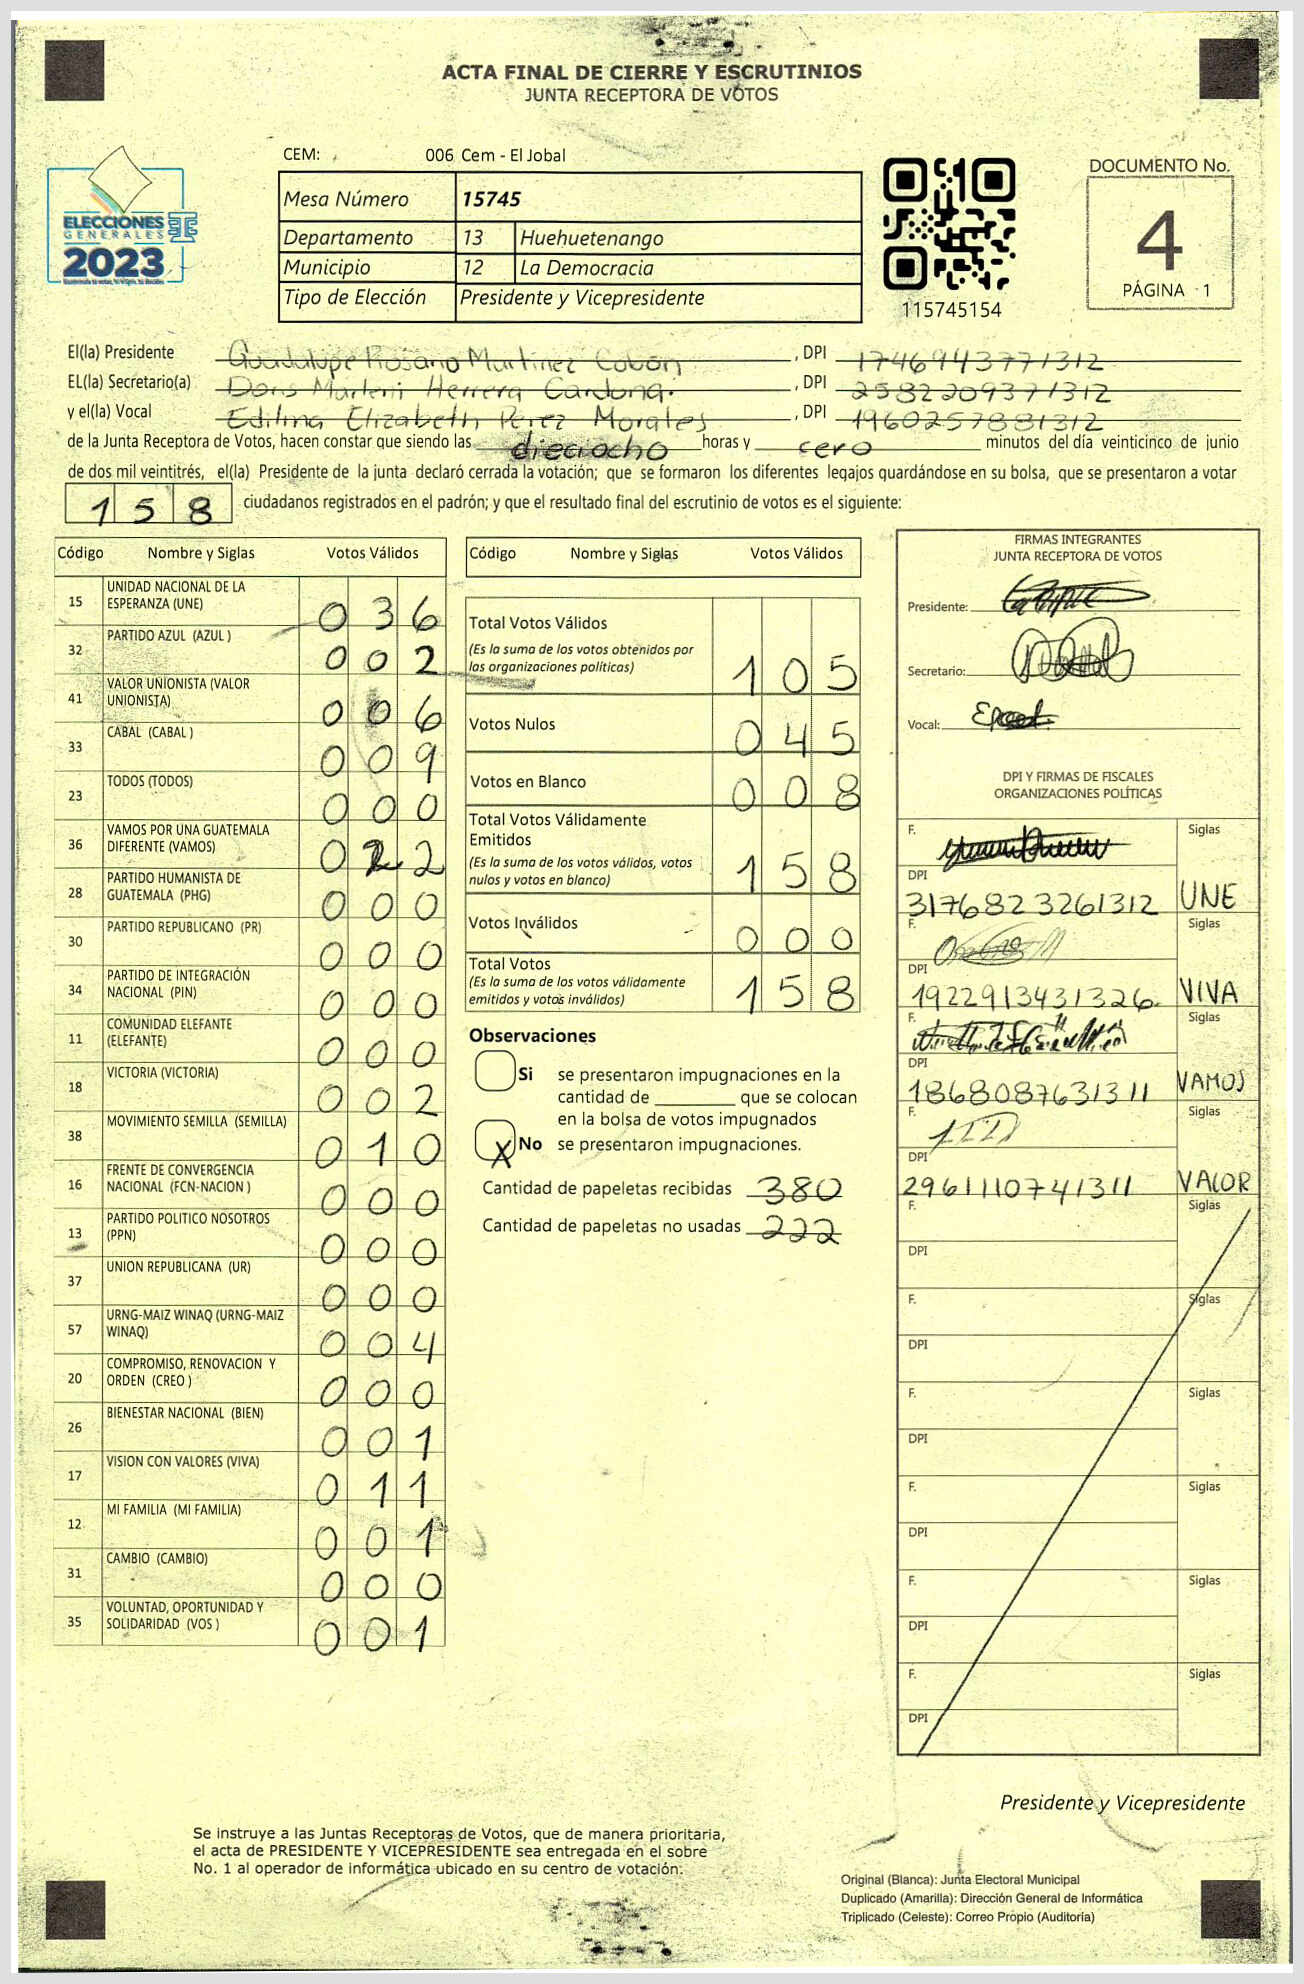 ACTA FINAL DE CIERRE Y ESCRUTINIOS
JUNTA RECEPTORA DE VOTOS
CEM: 006 Cem - El Jobal
ELECCIONES
GENERALES
2023
Mesa Número 15745
Departamento 13 Huehuetenango
Municipio 12 La Democracia
Tipo de Elección Presidente y Vicepresidente
115745154
DOCUMENTO No.
4
PÁGINA 1
El(la) Presidente Guadalupe Rosano Martinez Cobón, DPI 1746943771312
EL(la) Secretario(a) Doris Marleni Herrera Cardona, DPI 2582209371312
y el(la) Vocal Edilma Elizabeth Perez Morales, DPI 1960257881312
de la Junta Receptora de Votos, hacen constar que siendo las dieciocho horas y cero minutos del día veinticinco de junio
de dos mil veintitrés, el(la) Presidente de la junta declaró cerrada la votación; que se formaron los diferentes legajos quardándose en su bolsa, que se presentaron a votar
158 ciudadanos registrados en el padrón; y que el resultado final del escrutinio de votos es el siguiente:
Código Nombre y Siglas Votos Válidos
15 UNIDAD NACIONAL DE LA
ESPERANZA (UNE) 036
32 PARTIDO AZUL (AZUL ) 002
41 VALOR UNIONISTA (VALOR
UNIONISTA) 006
33 CABAL (CABAL ) 009
23 TODOS (TODOS) 000
36 VAMOS POR UNA GUATEMALA
DIFERENTE (VAMOS) 022
28 PARTIDO HUMANISTA DE
GUATEMALA (PHG) 000
30 PARTIDO REPUBLICANO (PR) 000
34 PARTIDO DE INTEGRACIÓN
NACIONAL (PIN) 000
11 COMUNIDAD ELEFANTE
(ELEFANTE) 000
18 VICTORIA (VICTORIA) 002
38 MOVIMIENTO SEMILLA (SEMILLA) 010
16 FRENTE DE CONVERGENCIA
NACIONAL (FCN-NACION ) 000
13 PARTIDO POLITICO NOSOTROS
(PPN) 000
37 UNION REPUBLICANA (UR) 000
57 URNG-MAIZ WINAQ (URNG-MAIZ
WINAQ) 004
20 COMPROMISO, RENOVACION Y
ORDEN (CREO ) 000
26 BIENESTAR NACIONAL (BIEN) 001
17 VISION CON VALORES (VIVA) 011
12 MI FAMILIA (MI FAMILIA) 001
31 CAMBIO (CAMBIO) 000
35 VOLUNTAD, OPORTUNIDAD Y
SOLIDARIDAD (VOS ) 001
Código Nombre y Siglas Votos Válidos
Total Votos Válidos
(Es la suma de los votos obtenidos por
las organizaciones políticas) 105
Votos Nulos 045
Votos en Blanco 008
Total Votos Válidamente
Emitidos
(Es la suma de los votos válidos, votos
nulos y votos en blanco) 158
Votos Inválidos 000
Total Votos
(Es la suma de los votos válidamente
emitidos y votos inválidos) 158
Observaciones
Si se presentaron impugnaciones en la
cantidad de ________ que se colocan
en la bolsa de votos impugnados
X No se presentaron impugnaciones.
Cantidad de papeletas recibidas 380
Cantidad de papeletas no usadas 222
FIRMAS INTEGRANTES
JUNTA RECEPTORA DE VOTOS
Presidente:
Secretario:
Vocal:
DPI Y FIRMAS DE FISCALES
ORGANIZACIONES POLÍTICAS
F. Siglas
DPI 3176823261312 UNE
F. Siglas
DPI 1922913431326 VIVA
F. Siglas
DPI 1868087631311 VAMOS
F. Siglas
DPI 2961110741311 VALOR
F. Siglas
DPI
F. Siglas
DPI
F. Siglas
DPI
F. Siglas
DPI
F. Siglas
DPI
F. Siglas
DPI
Presidente y Vicepresidente
Se instruye a las Juntas Receptoras de Votos, que de manera prioritaria,
el acta de PRESIDENTE Y VICEPRESIDENTE sea entregada en el sobre
No. 1 al operador de informática ubicado en su centro de votación.
Original (Blanca): Junta Electoral Municipal
Duplicado (Amarilla): Dirección General de Informática
Triplicado (Celeste): Correo Propio (Auditoria)